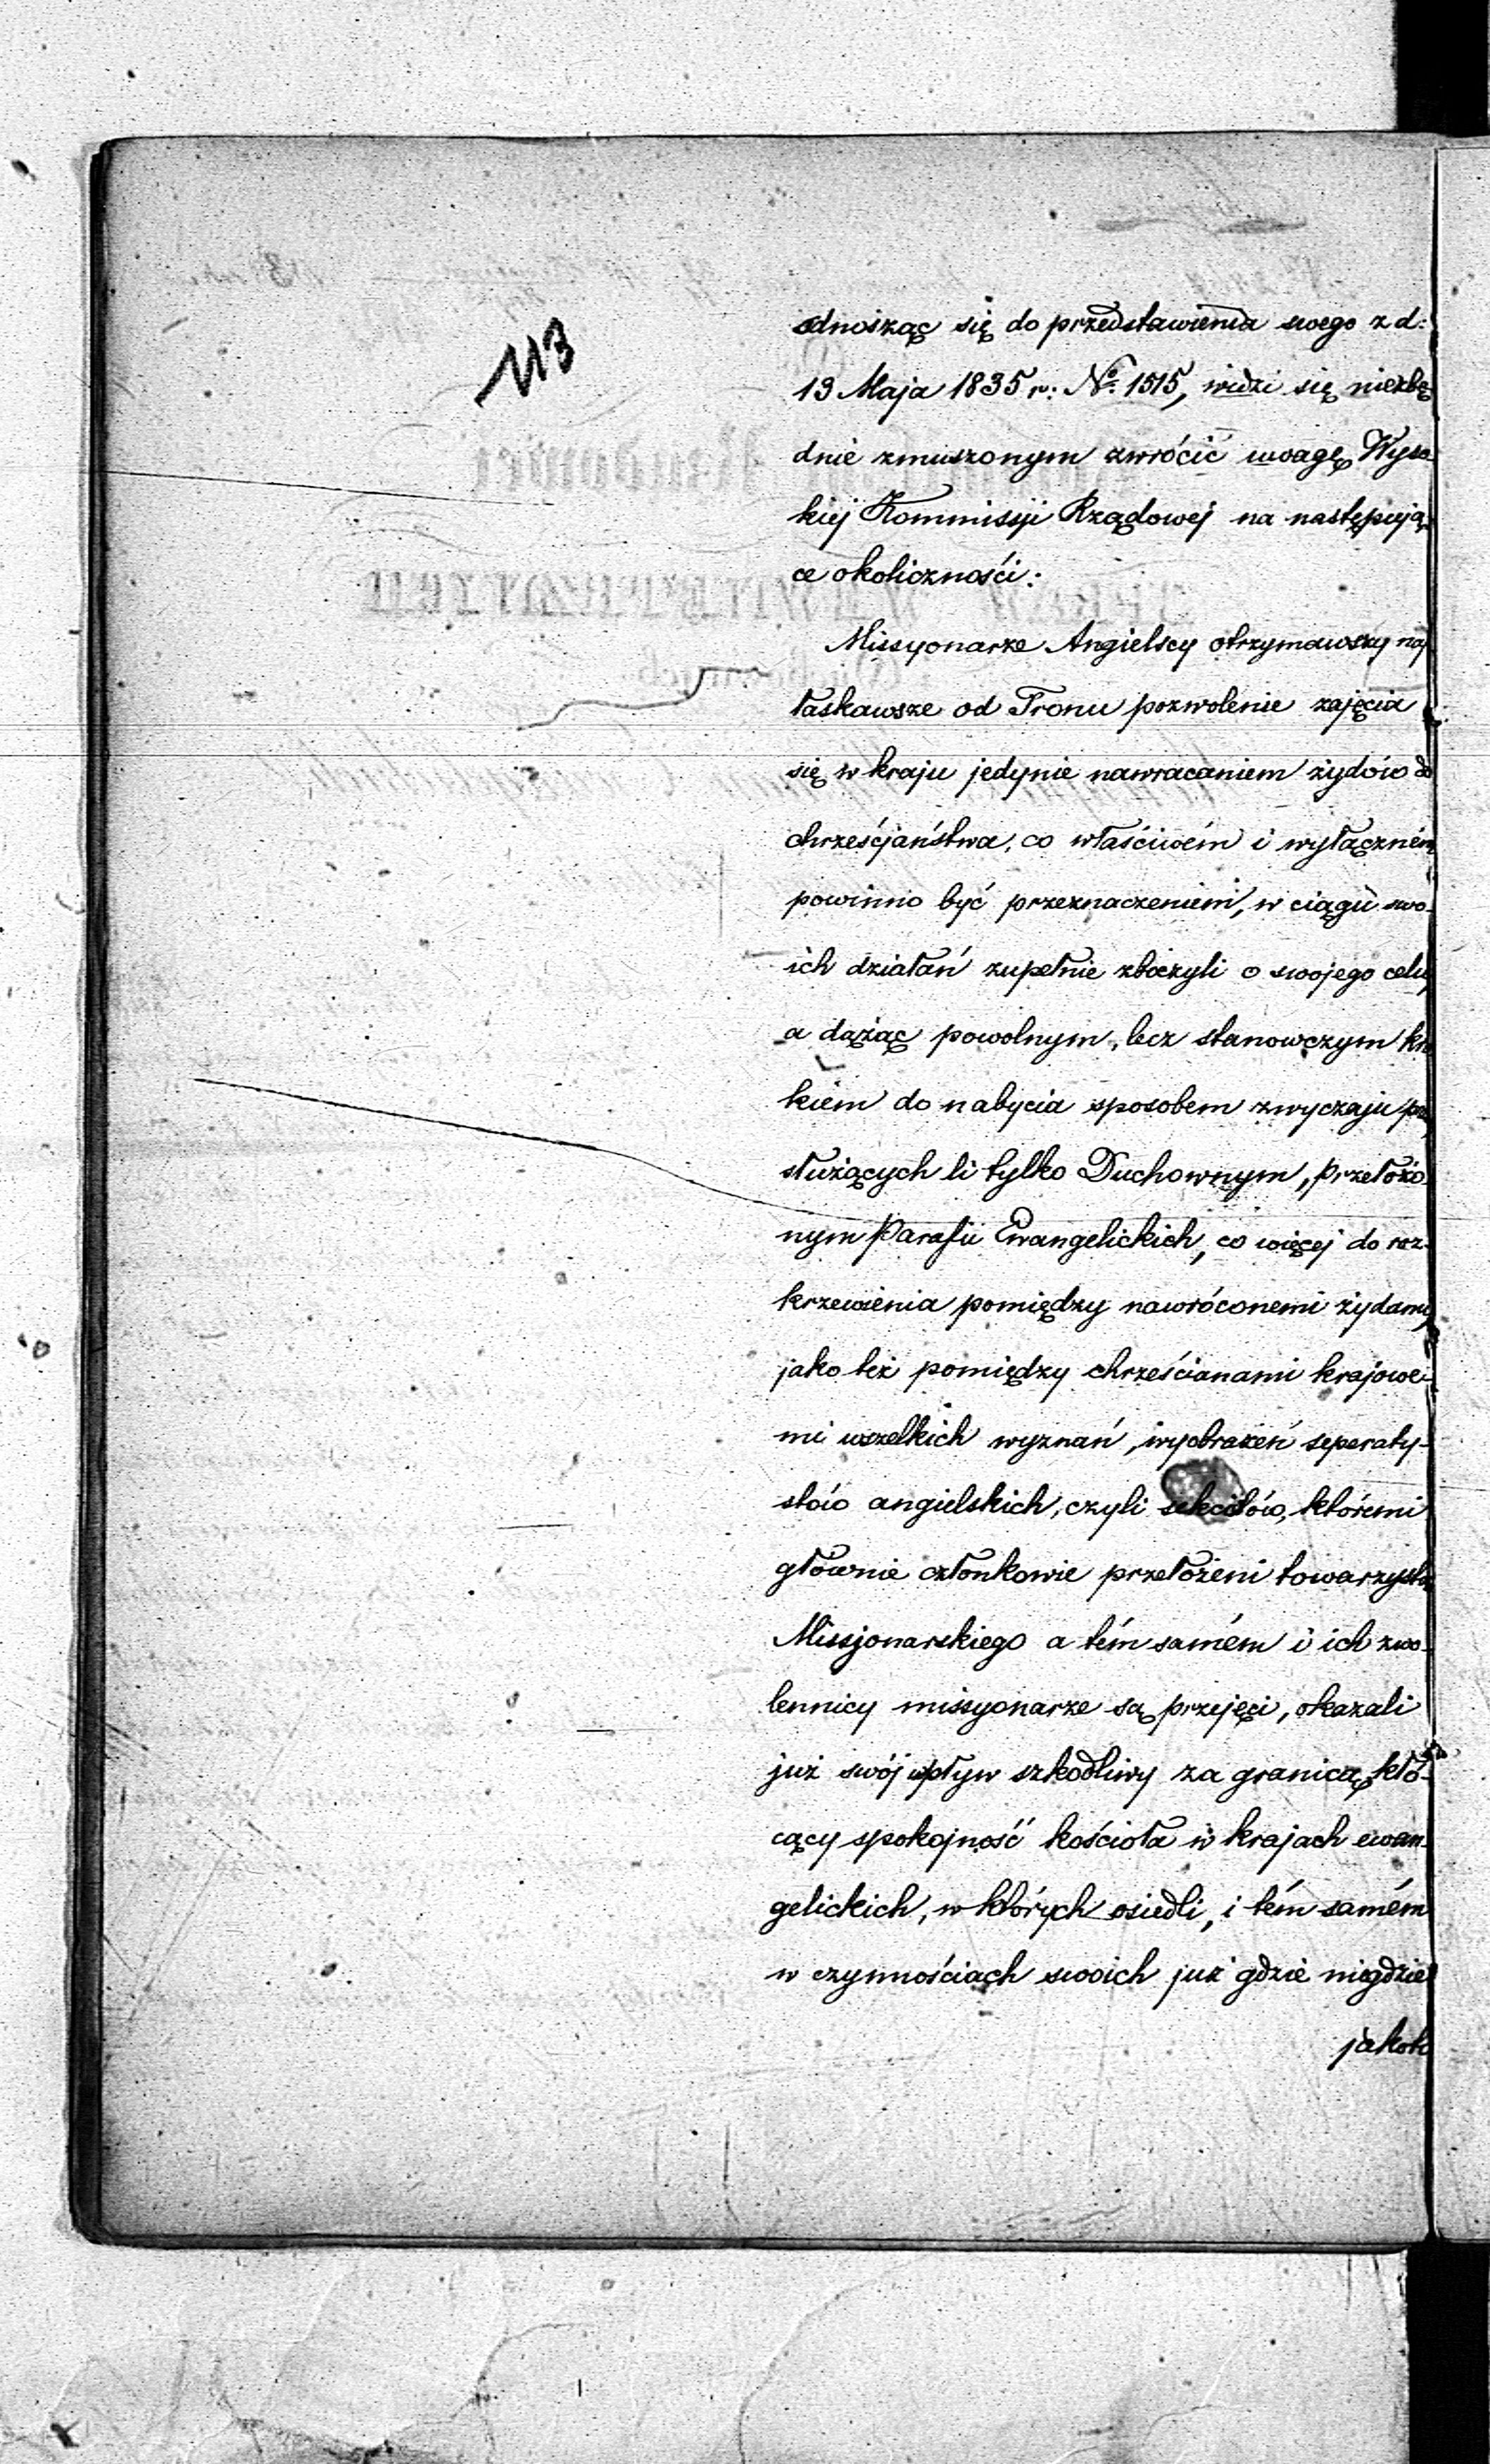 113
odnosząc się do przedstawienia swego z d:
19 Maja 1835 r: No. 1515, widzi się niezbę
dnie zmuszonym zwrócić uwagę Wyso
kiej Kommissyi Rządowej na następują
ce okoliczności:
Missyonarze Angielscy otrzymawszy naj
łaskawsze od Tronu pozwolenie zajęcia
się w kraju jedynie nawracaniem żydów do
chrześcjaństwa, co właściwém i wyłączném
powinno być przeznaczeniem, w ciągu swo-
ich działań zupełnie zboczyli o swojego celu,
a dążąc powolnym, lecz stanowczym
kiem do nabycia sposobem zwyczaju
służących li tylko Duchownym, przełożo-
nym Parafii Ewangelickich, co więcej do roz-
krzewienia pomiędzy nawróconemi żydami,
jako też pomiędzy chrześcianami krajowe-
mi wszelkich wyznań, wyobrażeń seperaty-
stów angielskich, czyli któremi
głównie członkowie przełożeni towarzystwa
Missjonarskiego a tém samém i ich zwo-
lennicy missyonarze są przejęci, okazali
już swój wpływ szkodliwy za granicą, kłó-
cący spokojność kościoła w krajach ewan-
gelickich, w których osiedli, i tém samém
w czynnościach swoich już gdzie niegdzie